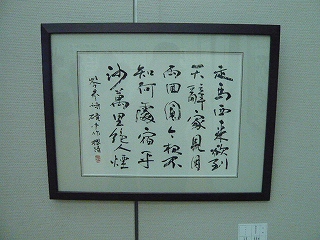 走馬西来欲到
天辭家見月
兩回圓今夜不
知何處宿平
沙萬里絶人煙
岑参詩磧中作